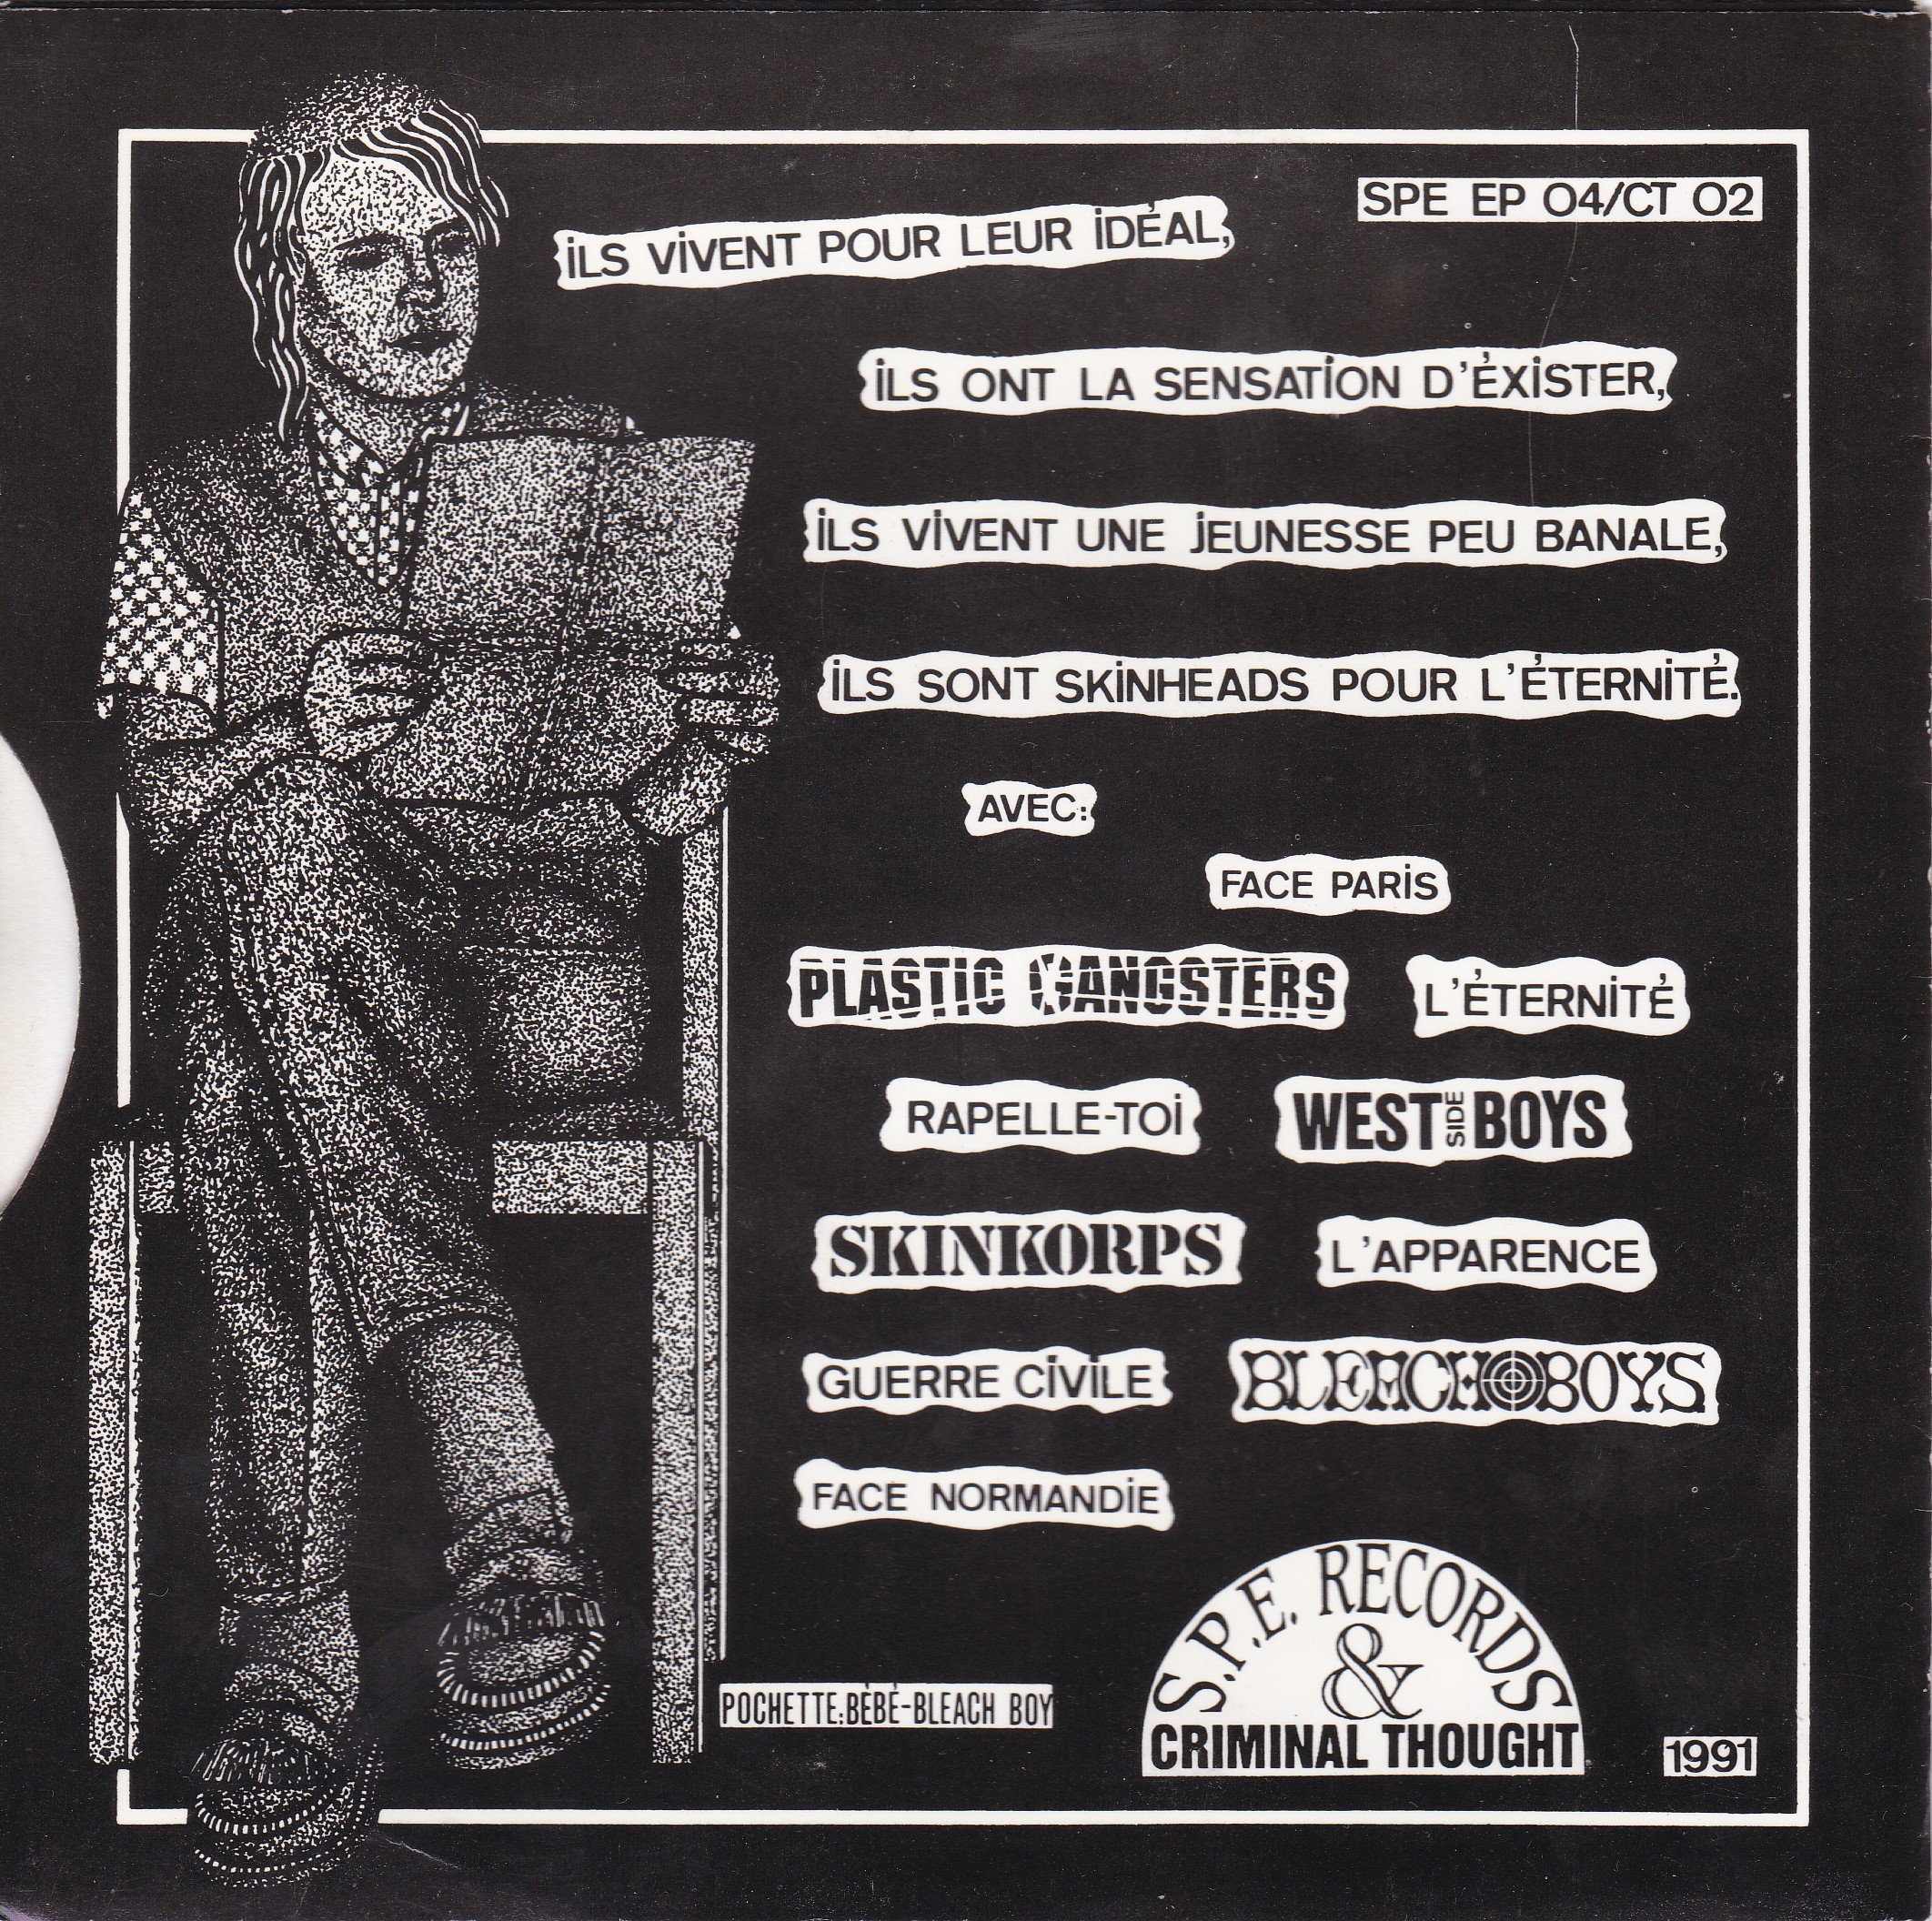 SPE EP 04/CT 02
iLS ViVENT POUR LEUR iDÉAL,
iLS ONT LA SENSATiON D'ÉXiSTER,
iLS ViVENT UNE jEUNESSE PEU BANALE,
iLS SONT SKiNHEADS POUR L'ÉTERNiTÉ.
AVEC:
FACE PARiS
PLASTIC GANGSTERS L'ÉTERNiTÉ
RAPELLE-TOi WEST SIDE BOYS
SKINKORPS L'APPARENCE
GUERRE CiViLE BLEACH BOYS
FACE NORMANDiE
S.P.E. RECORDS
&
CRIMINAL THOUGHT
POCHETTE:BÉBÉ-BLEACH BOY
1991